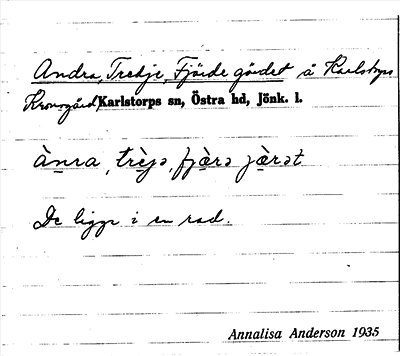 Andra, Tredje, Fjärde gärdet å Karlstorps
Kronogård Karlstorps sn, Östra hd, Jönk. l.
ànra, trèjə, fjæ̀rə jæ̀rət
De ligga i en rad.
Annalisa Anderson 1935